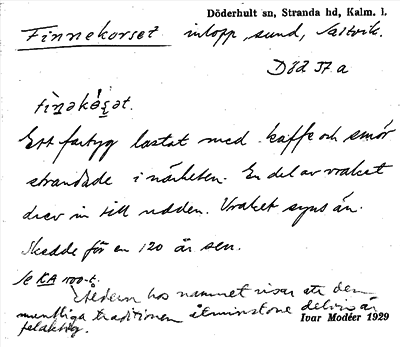 Döderhult sn, Stranda hd, Kalm. l.
Finnekorset inlopp, sund, Saltvik.
Död 37 a
Ett fartyg lastat med kaffe och smör
strandade i närheten. En del av vraket
drev in till udden. Vraket syns än.
Skedde för en 120 år sen.
Se KA 100-t.
Åldern hos namnet visar att den
muntliga traditionen åtminstone delvis är
felaktig.
Ivar Modéer 1929